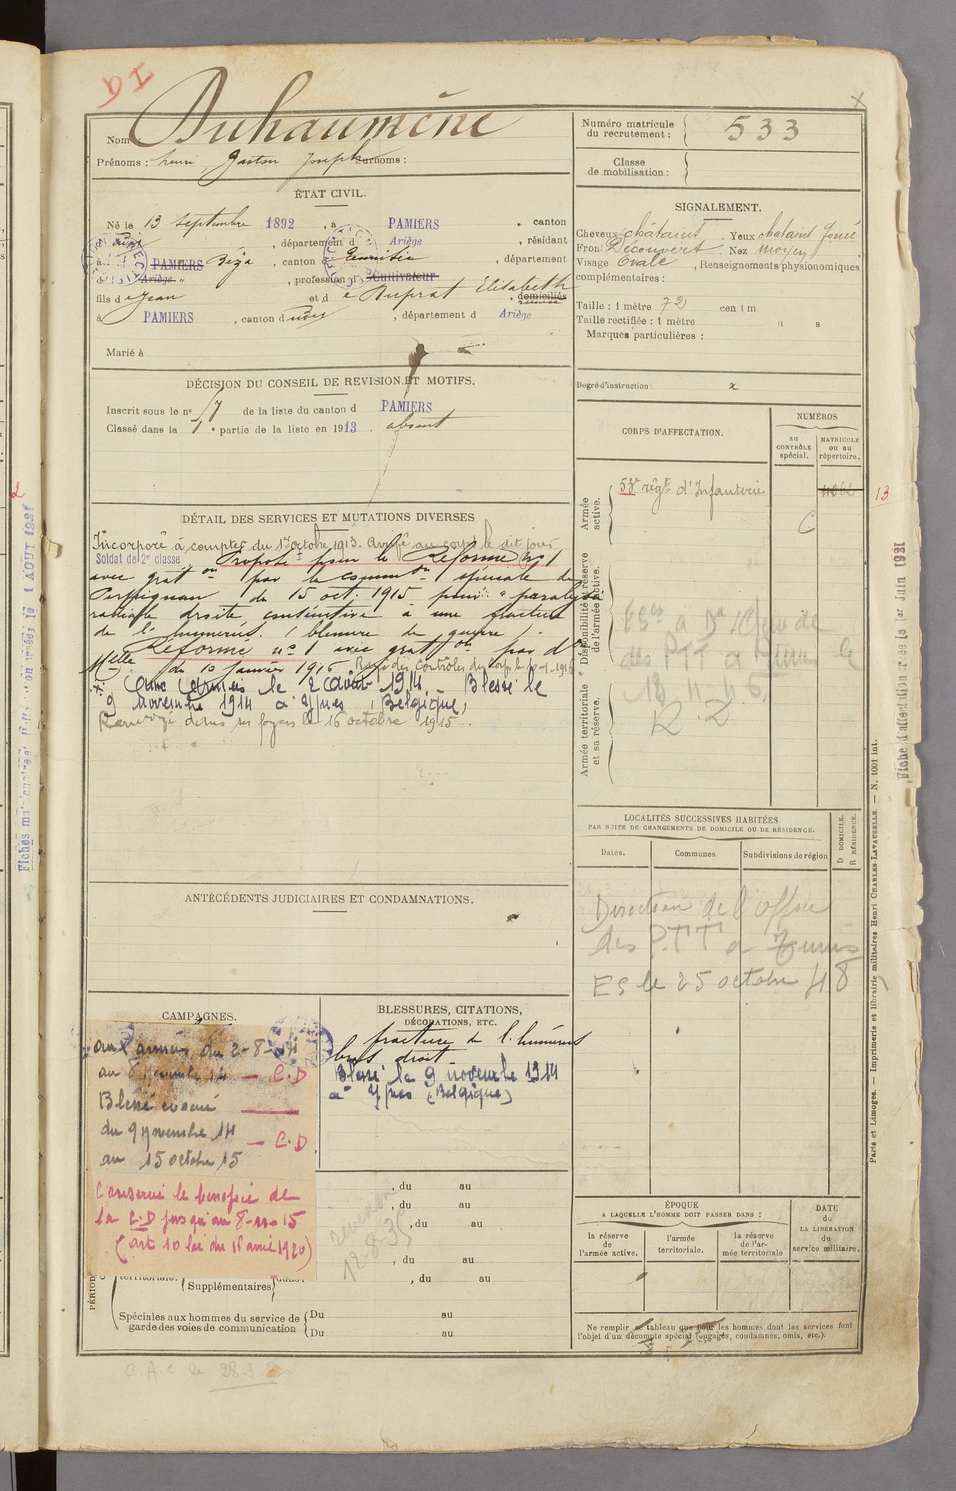 DI
Nom Duhaumène
Prénoms : henri Gaston Joseph Surnoms :
Numéro matricule du recrutement : 533
Classe de mobilisation :
ÉTAT CIVIL.
Né le 13 septembre 1892, à PAMIERS, canton
dudit, département d Ariège, résidant
à PAMIERS Béja, canton d, département
d Ariège ", profession d Cultivateur
fils de Jean et de Duprat Elisabeth, domiciliés
à PAMIERS, canton dudit, département d Ariège
Marié à
SIGNALEMENT.
Cheveux châtains Yeux châtains foncé
Front Découvert Nez moyen
Visage Ovale, Renseignements physionomiques
complémentaires :
Taille : 1 mètre 72 centim
Taille rectifiée : 1 mètre
Marques particulières :
Degré d'instruction : x
DÉCISION DU CONSEIL DE REVISION ET MOTIFS.
Inscrit sous le n° 17 de la liste du canton d PAMIERS
Classé dans la 1e partie de la liste en 1913. absent
CORPS D'AFFECTATION.
NUMÉROS
au CONTRÔLE spécial.
MATRICULE ou au répertoire.
Armée active.
53e régt d'Infanterie
13
C
Disponibilité et réserve de l'armée active.
des PTT a le
18-11-46
R.D
Armée territoriale et sa réserve.
DÉTAIL DES SERVICES ET MUTATIONS DIVERSES
Incorporé à compter du 1er octobre 1913. Arrivé au corps le dit jour
Soldat de 2e classe Proposé pour la Réforme n° 1
avec graton par la common spéciale de
Perpignan du 15 oct. 1915 pour : "paralysie
radiale droite consécutive à une fracture
de l'humérus. (blessure de guerre).
Réformé n° 1 avec gratton par don
Mielle du 10 janvier 1916 Rayé des contrôles du corps le 10-1-1916
Aux Armées le 2 août 1914. Blessé le
9 novembre 1914 à Ypres (Belgique)
Renvoyé dans ses foyers le 16 octobre 1915.
LOCALITÉS SUCCESSIVES HABITÉES
PAR SUITE DE CHANGEMENTS DE DOMICILE OU DE RÉSIDENCE.
Dates.
Communes.
Subdivisions de région
D DOMICILE.
R RÉSIDENCE.
Direction de l'office
des P.T.T a Tunis
ES le 25 octobre 48
ANTÉCÉDENTS JUDICIAIRES ET CONDAMNATIONS.
CAMPAGNES.
aux armées du 2-8-14
au 8 novembre 14 — C.D
Blessé évacué
du 9 novembre 14
au 15 octobre 15 — C.D
Conservé le bénéfice de
la C.D jusqu'au 8-11-15
(art 10 loi du 15 avril 1920)
BLESSURES, CITATIONS, DÉCORATIONS, ETC.
fracture de l'humérus
bras droit
Blessé le 9 novembre 1914
à Ypres (Belgique)
, du au
, du au
, du au
, du au
, du au
12-8-35
territoriale.
Supplémentaires
Spéciales aux hommes du service de garde des voies de communication
Du au
Du au
ÉPOQUE
A LAQUELLE L'HOMME DOIT PASSER DANS :
la réserve de l'armée active.
l'armée territoriale.
la réserve de l'armée territoriale
DATE de LA LIBÉRATION du service militaire.
Ne remplir ce tableau que pour les hommes dont les services font
l'objet d'un décompte spécial (engagés, condamnés, omis, etc.).
Paris et Limoges. — Imprimerie et librairie militaires Henri CHARLES-LAVAUZELLE. — N. 1001 int.
Fiche d'affectation créée le 1er Juin 1921